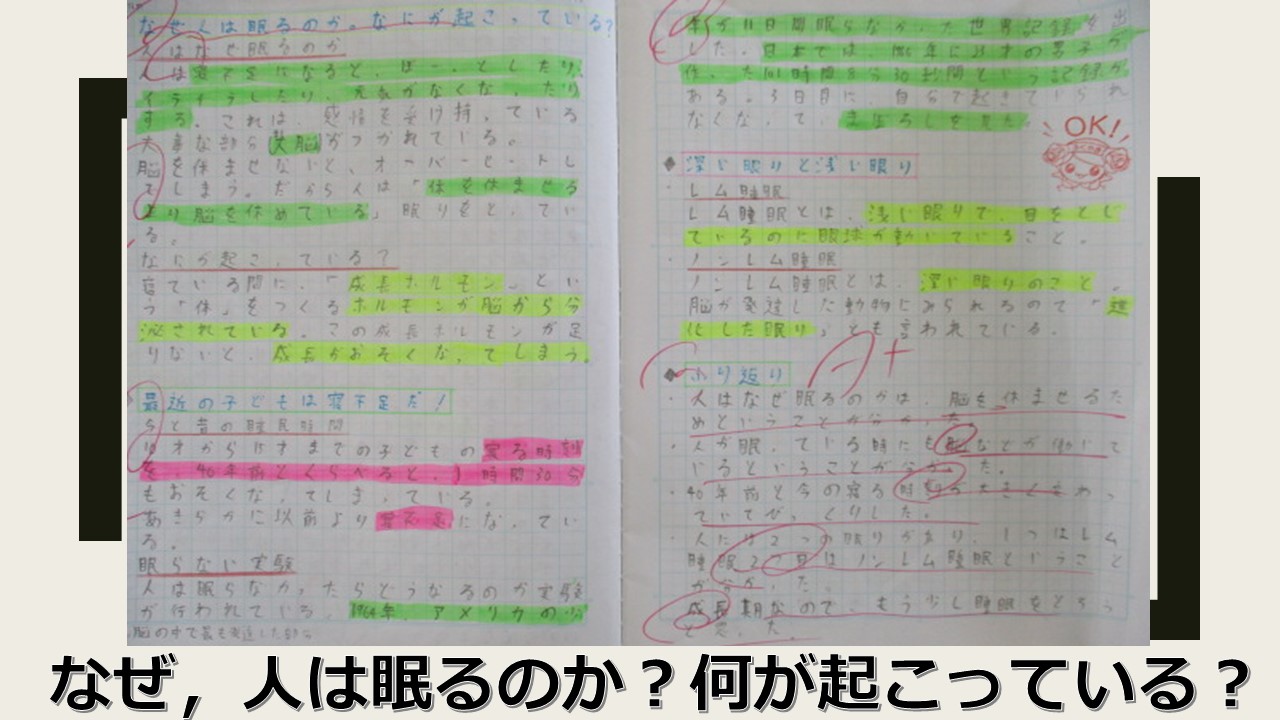 なぜ人は眠るのか。なにが起こっている?
人はなぜ眠るのか
人は寝不足になると、ぼーっとしたり、
イライラしたり、元気がなくなったり
する。これは、感情を受け持っている
大事な部分大脳がつかれている。
脳を休ませないと、オーバーヒートし
てしまう。だから人は「体を休ませる
より脳を休めている」眠りをとってい
る。
なにが起こっている?
寝ている間に、「成長ホルモン」とい
う「体」をつくるホルモンが脳から分
泌されている。この成長ホルモンが足
りないと、成長がおそくなってしまう。
最近の子どもは寝不足だ!
今と昔の睡眠時間
才までの子どもの寝る時刻
を、40年前とくらべると、1時間30分
もおそくなってしまっている。
あきらかに以前より寝不足になってい
る。
眠らない実験
人は眠らなかったらどうなるのか実験
が行われている。1964年、アメリカの少
脳の中で最も発達した部分
年が11日間眠らなかった世界記録を出
した。日本では、年に23才の男子が
作った101時間8分30秒間という記録が
ある。3日目に、自分で起きていられ
なくなって、まぼろしを見た。
OK!
◆深い眠りと浅い眠り
・レム睡眠
レム睡眠とは、浅い眠りで、目をとじ
ているのに眼球が動いていること。
・ノンレム睡眠
ノンレム睡眠とは、深い眠りのこと。
脳が発達した動物にみられるので「進
化した眠り」とも言われている。
A+
◆ふり返り
・人はなぜ眠るのかは、脳を休ませるた
めということが分かった。
・人が眠っている時にも脳などが働いて
いるということが分かった。
・40年前と今の寝る時刻が大きくもわっ
ていてびっくりした。
・人には2つの眠りがあり、1つはレム
睡眠2つ目はノンレム睡眠ということ
が分かった。
・成長期なので、もう少し睡眠をとろう
と思った。
なぜ，人は眠るのか？何が起こっている？